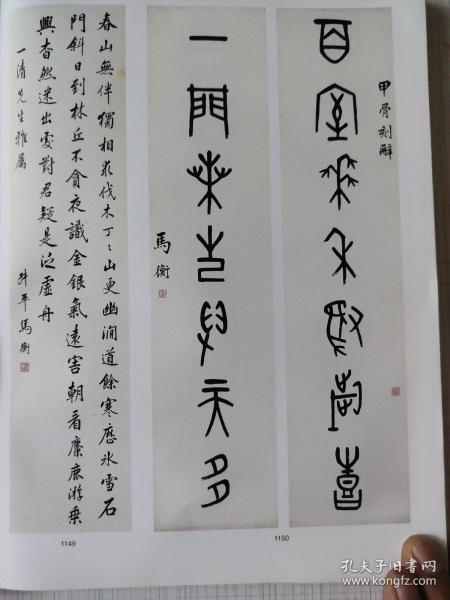 甲骨刻辭
百室禾喜
一門多
馬衡
春山無伴獨相求伐木丁〻山更幽澗道餘寒歷冰雪石
門斜日到林丘不貪夜識金銀氣遠害朝看麋鹿游乘
興杳然迷出處對君疑是泛虛舟
一清先生雅屬
馬衡
1149
1150
孔夫子旧书网
www.kongfz.com